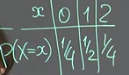 x 0 1 2
P(X=x) 1/4 1/2 1/4